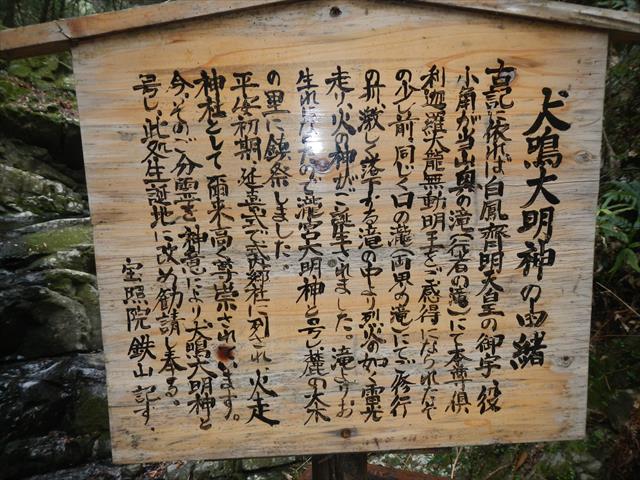 犬鳴大明神の由緒
古記に依れば白鳳齊明天皇の御宇、役
小角が当山奥の滝(行者の滝)にて本尊倶
利迦羅大龍不動明王をご感得になられたその
の少し前、同じく口の瀧(両界の滝)にてご修行
の折、激しく落下する滝の中より烈火の如く電光
走り、火の神がご誕生されました。滝よりお
生れになったので瀧宮大明神と号し、麓の大木
の里に鎮祭しました。
平安初期、延喜式に式外社に列され、火走
神社として爾来高く尊崇されています。
今、そのご分霊を神意により犬鳴大明神と
号し、此処生誕地に改め勧請し奉る。
宝照院 鉄山 記す。